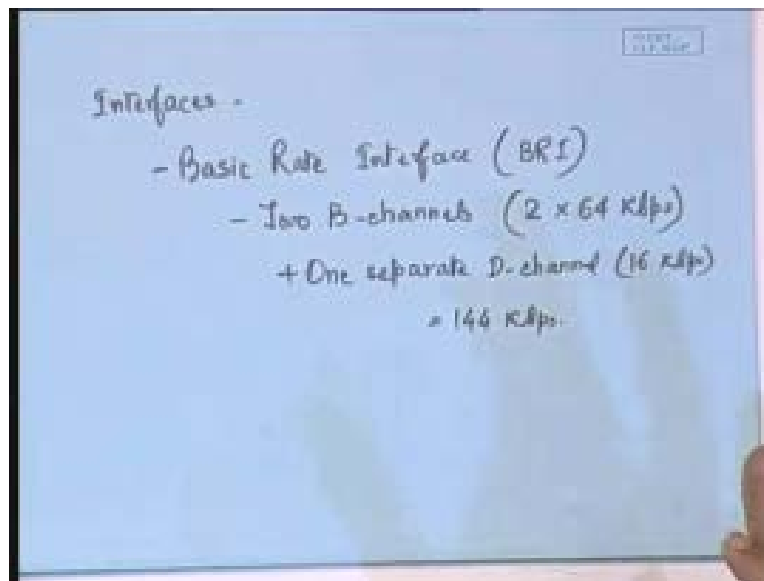 Interfaces -
- Basic Rate Interface (BRI)
- Two B-channels (2 × 64 Kbps)
+ One separate D-channel (16 Kbps)
= 144 Kbps.